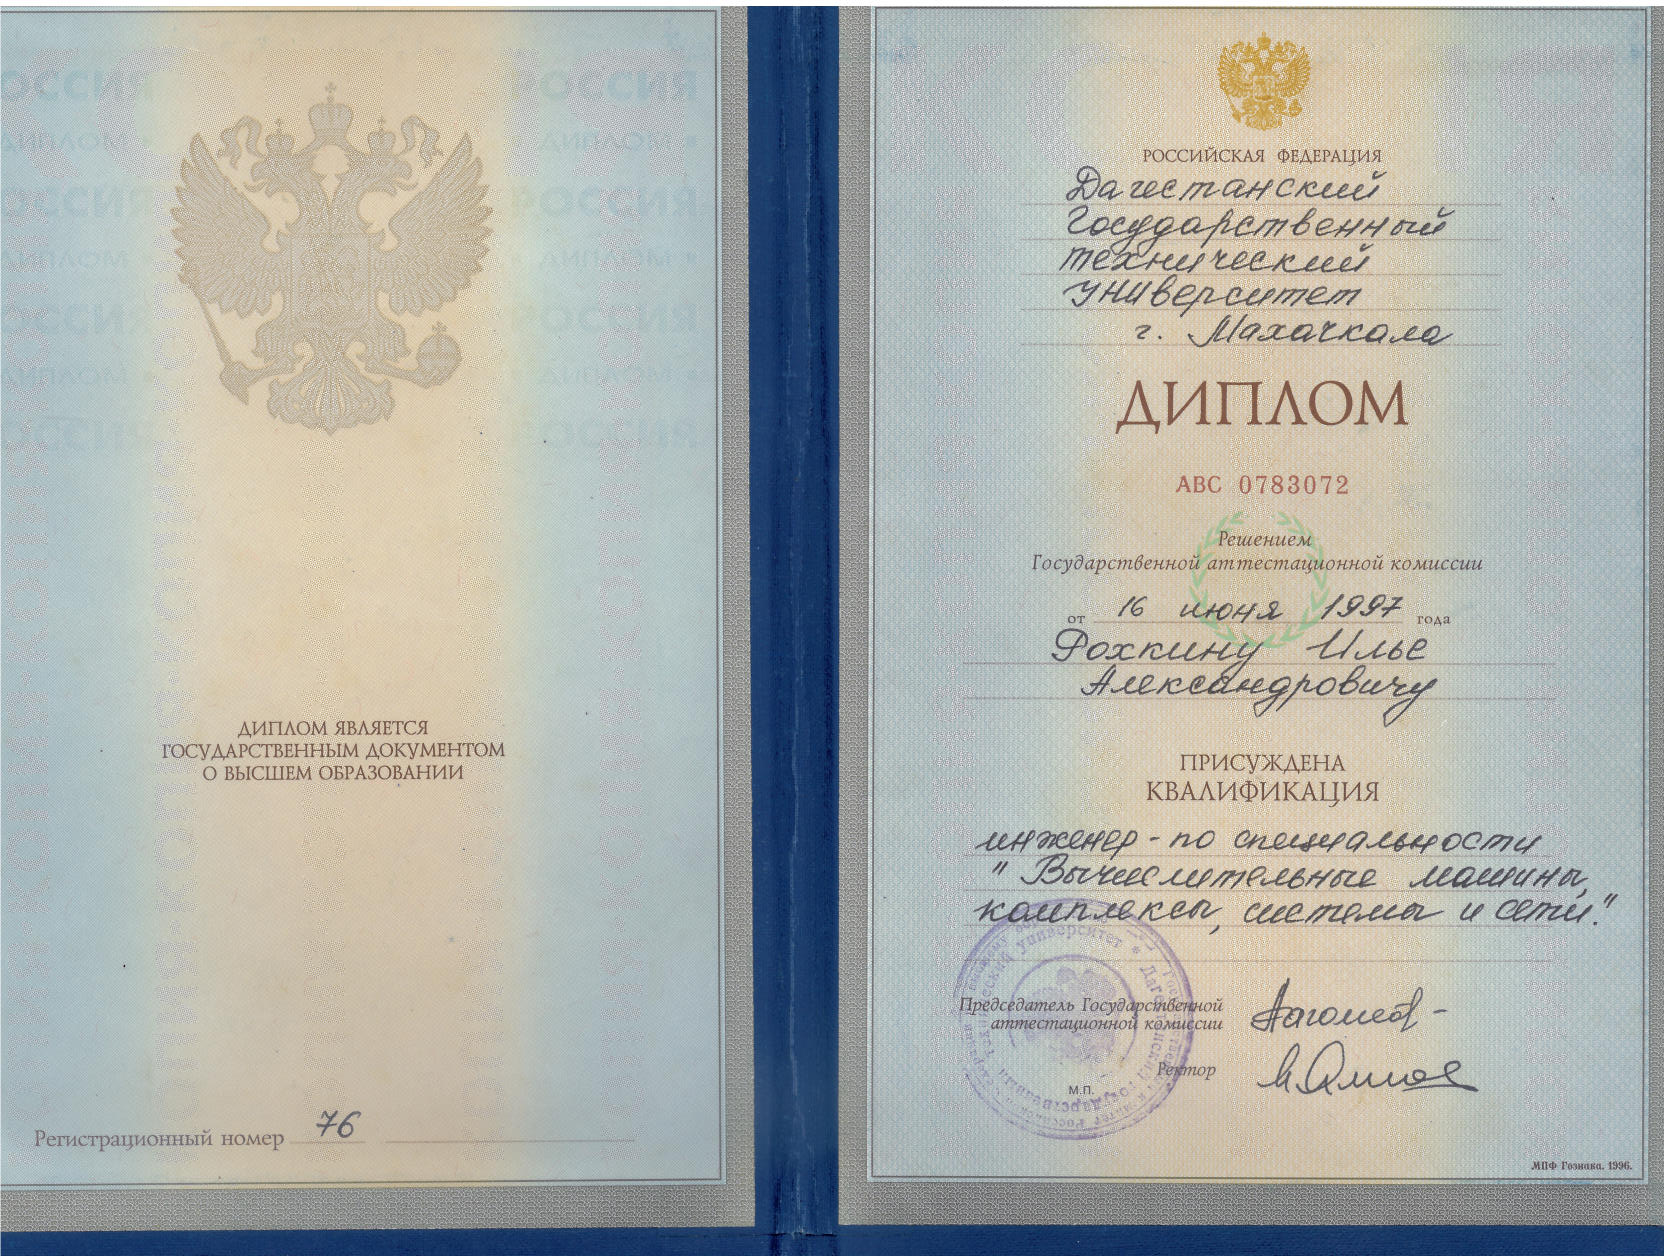 ДИПЛОМ ЯВЛЯЕТСЯ
ГОСУДАРСТВЕННЫМ ДОКУМЕНТОМ
О ВЫСШЕМ ОБРАЗОВАНИИ
Регистрационный номер 76
РОССИЙСКАЯ ФЕДЕРАЦИЯ
Дагестанский
Государственный
технический
университет
г. Махачкала
ДИПЛОМ
АВС 0783072
Решением
Государственной аттестационной комиссии
от 16 июня 1997 года
Рохкину Илье
Александровичу
ПРИСУЖДЕНА
КВАЛИФИКАЦИЯ
инженер - по специальности
"Вычислительные машины,
комплексы, системы и сети."
Председатель Государственной
аттестационной комиссии
Ректор
М.П.
МПФ Гознака. 1996.